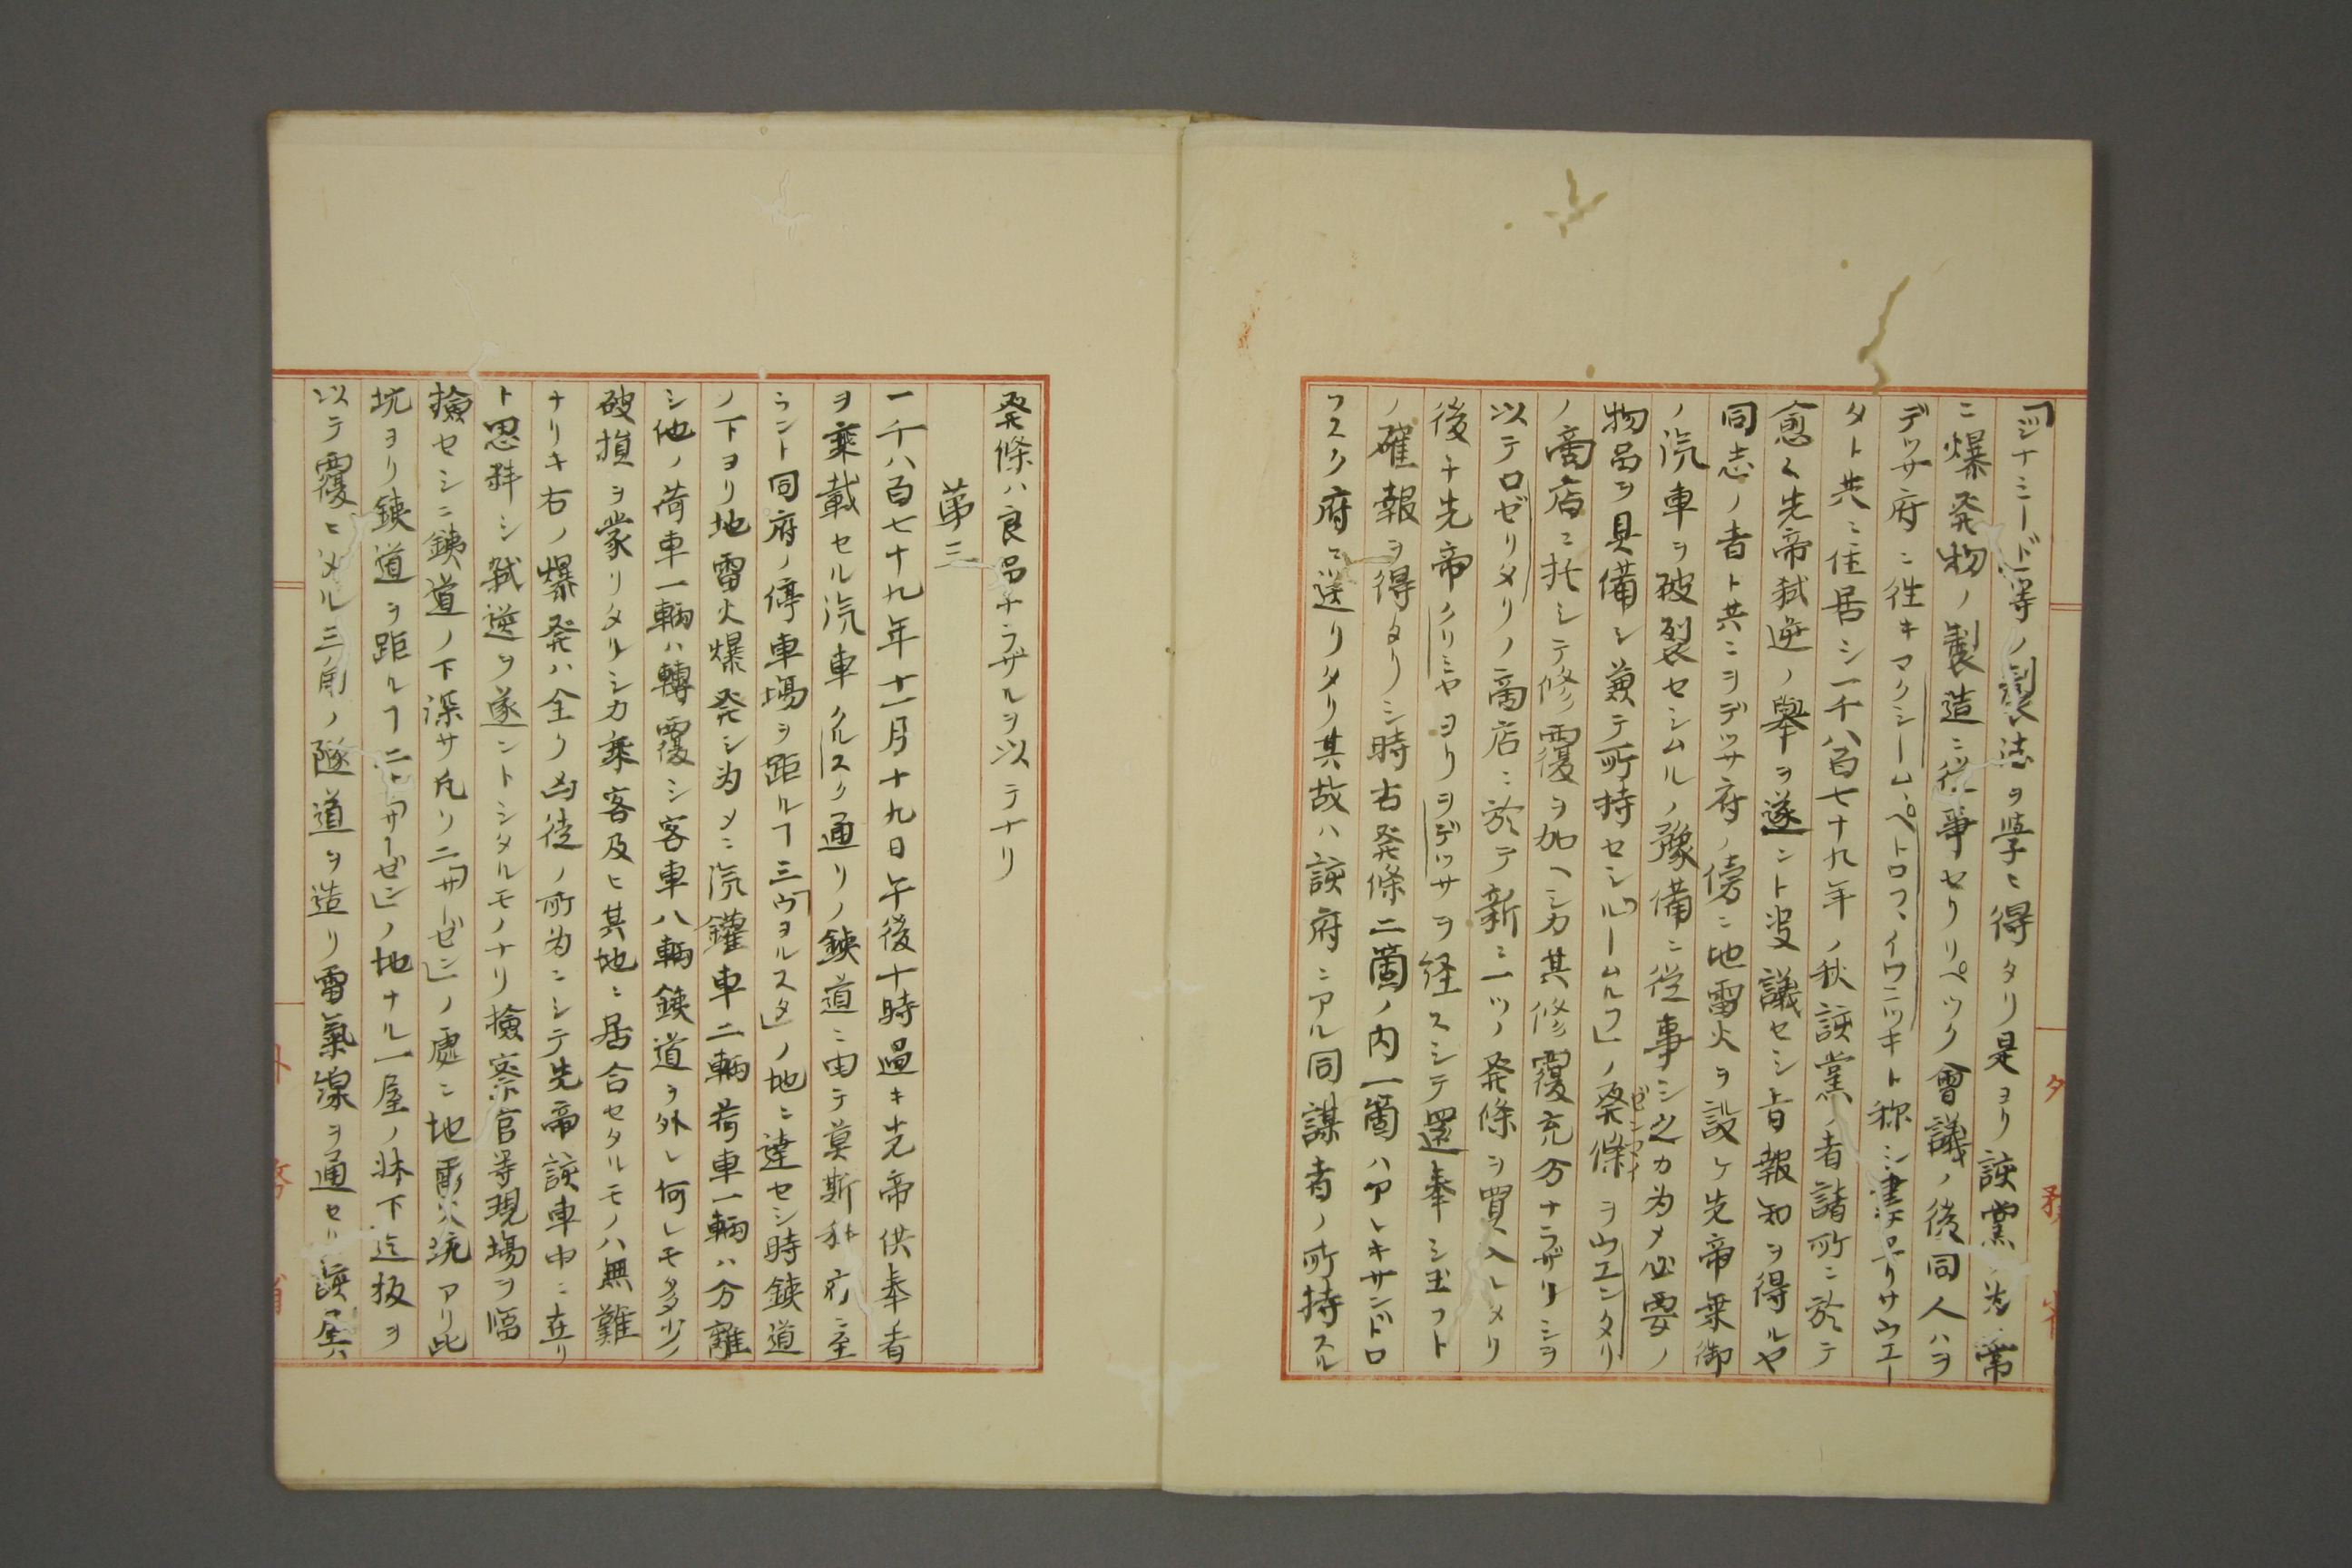 「ヂナミード」等ノ製法ヲ學ヒ得タリ是ヨリ該黨ノ為常
ニ爆発物ノ製造ニ従事セリリペツク會議ノ後同人ハヲ
デツサ府ニ往キマクシーム、ペトロフ、イワニツキト称シ
タト共ニ住居シ一千八百七十九年ノ秋該黨ノ者諸所ニ於テ
愈〻先帝弑逆ノ擧ヲ遂ントノ議セシ旨報知ヲ得ルヤ
同志ノ者ト共ニヲデツサ府ノ傍ニ地雷火ヲ設ケ先帝乗御
ノ汽車ヲ破裂セシムルノ豫備ニ従事シ之カ為メ必要ノ
物品ヲ具備シ兼テ所持セシ「ルームルフ」ノ発條ヲウエンタリ
ゼンマイ
ノ商店ニ托シテ修覆ヲ加ヘシカ其修覆充分ナラザリシヲ
以テロゼリメリノ商店ニ於テ新ニ一ツノ発條ヲ買入レメリ
後チ先帝クリミヤヨリヲデツサヲ経スシテ還奉シ玉フト
ノ確報ヲ得タリシ時古発條二箇ノ内一箇ハアレキサンドロ
フスク府ニ送リタリ其故ハ該府ニアル同謀者ノ所持スル
発條ハ良品ナラザルヲ以テナリ
第三
一千八百七十九年十一月十九日午後十時過キ先帝供奉ノ者
ヲ乗載セル汽車クルスク通リノ鉄道ニ由テ莫斯科府ニ至
ラント同府ノ停車場ヲ距ルヿ三「ウヲルスタ」ノ地ニ達セシ時鉄道
ノ下ヨリ地雷火爆発シ為メニ汽鑵車二輌荷車一輌ハ分離
シ他ノ荷車一輌ハ轉覆シ客車八輌鉄道ヲ外レ何レモ多少ノ
破損ヲ蒙リタリシカ乗客及ヒ其地ニ居合セタルモノハ無難
ナリキ右ノ爆発ハ全ク凶徒ノ所為ニシテ先帝該車中ニ在リ
ト思料シ弑逆ヲ遂ントシタルモノナリ檢察官等現場ヲ臨
檢セシニ鉄道ノ下深サ凡ソ二「サーゼン」ノ處ニ地雷火坑アリ此
坑ヨリ鉄道ヲ距ルヿ二十「サーゼン」ノ地ナル一屋ノ牀下迄板ヲ
以テ覆ヒメル三角ノ隧道ヲ造リ雷氣線ヲ通セリ該屋ハ
外務省